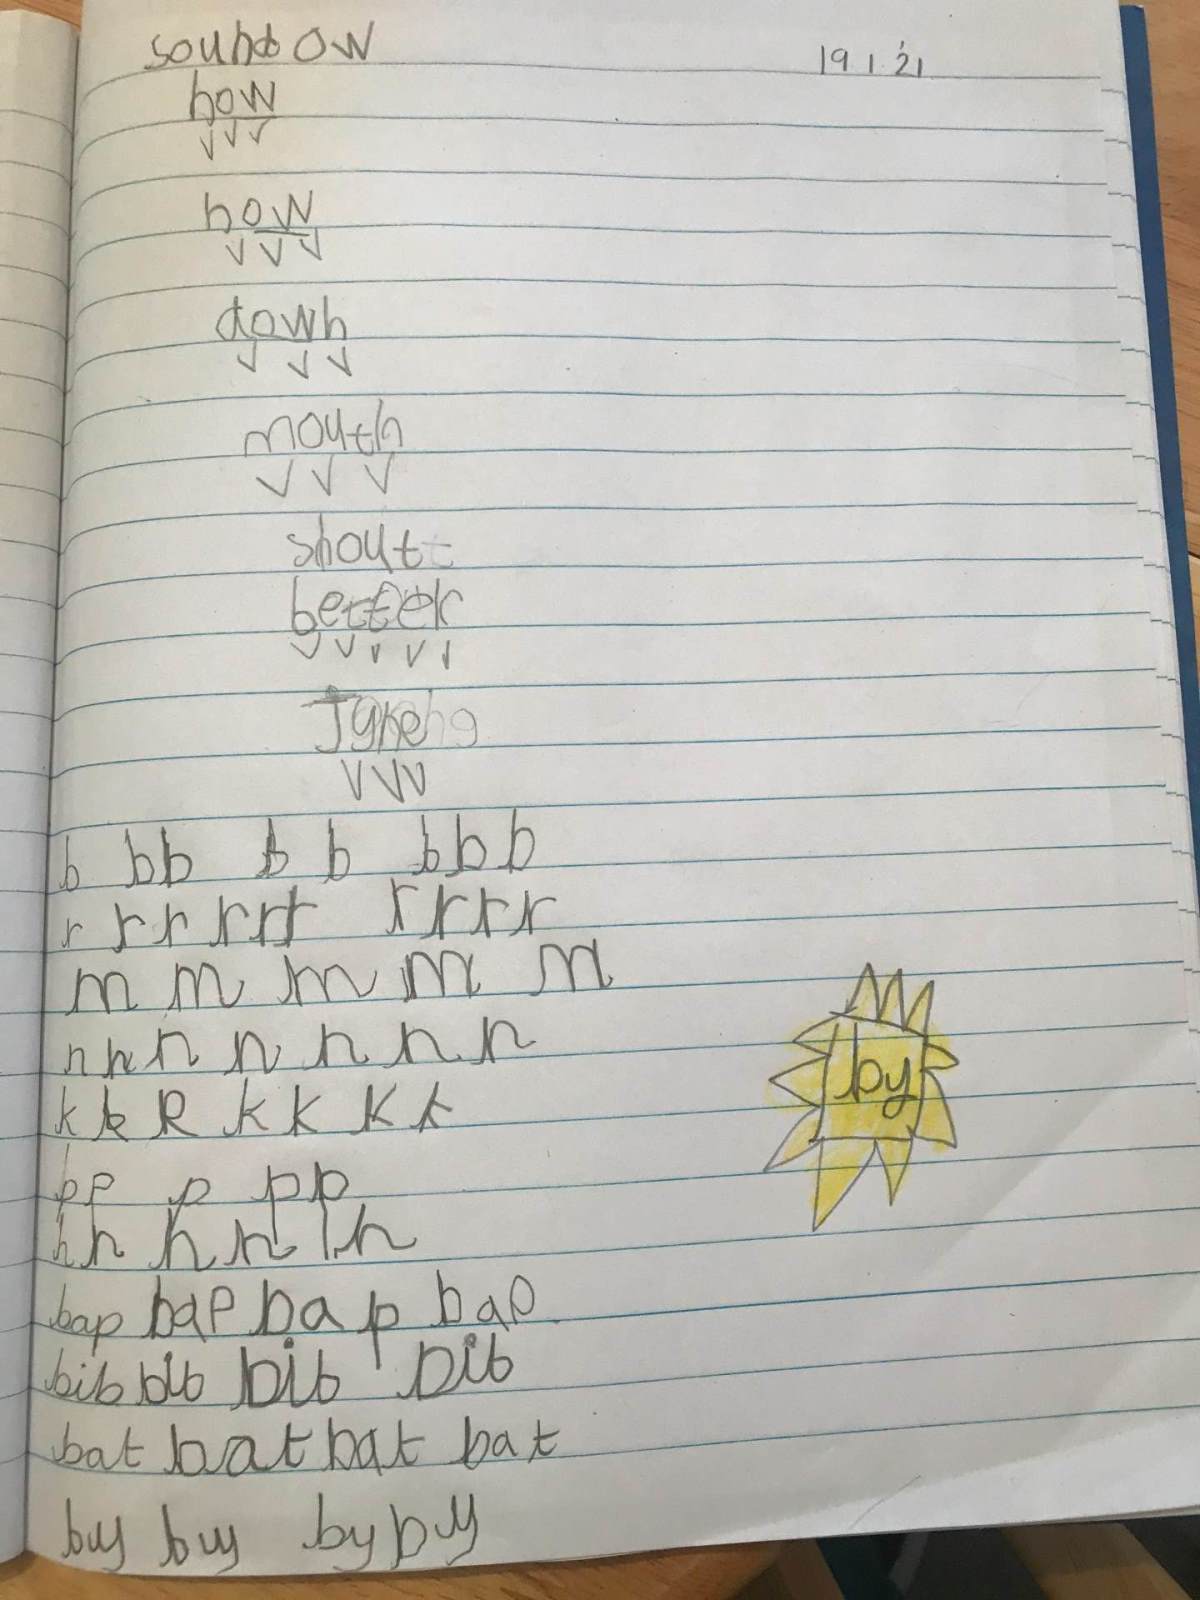 sound ow 19 1 21
how
now
down
mouth
shout
better
b bb b b b b b
r r r r r r r r r r
m m m m m
n n n n n n n
k k k k k k k
p p p p p
h h h h h
by
bap bap bap bap
bib bib bib bib
bat bat bat bat
by by by by